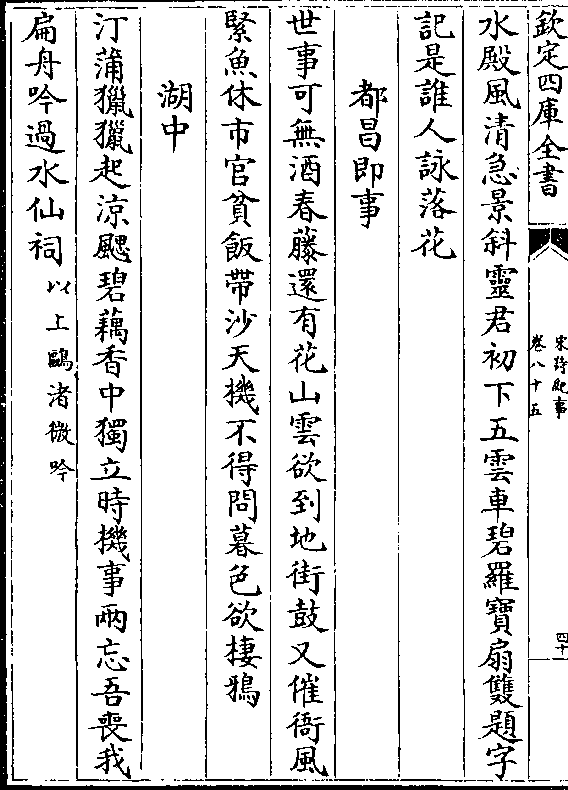 欽定四庫全書
宋詩紀事
卷八十五
四十
水殿風清急景斜靈君初下五雲車碧羅寶扇雙題字
記是誰人詠落花
都昌即事
世事可無酒春藤還有花山雲欲到地街鼓又催衙風
緊魚休市官貧飯帶沙天機不得問暮色欲棲鴉
湖中
汀蒲獵獵起涼颸碧藕香中獨立時機事兩忘吾喪我
扁舟吟過水仙祠以上鷗渚微吟